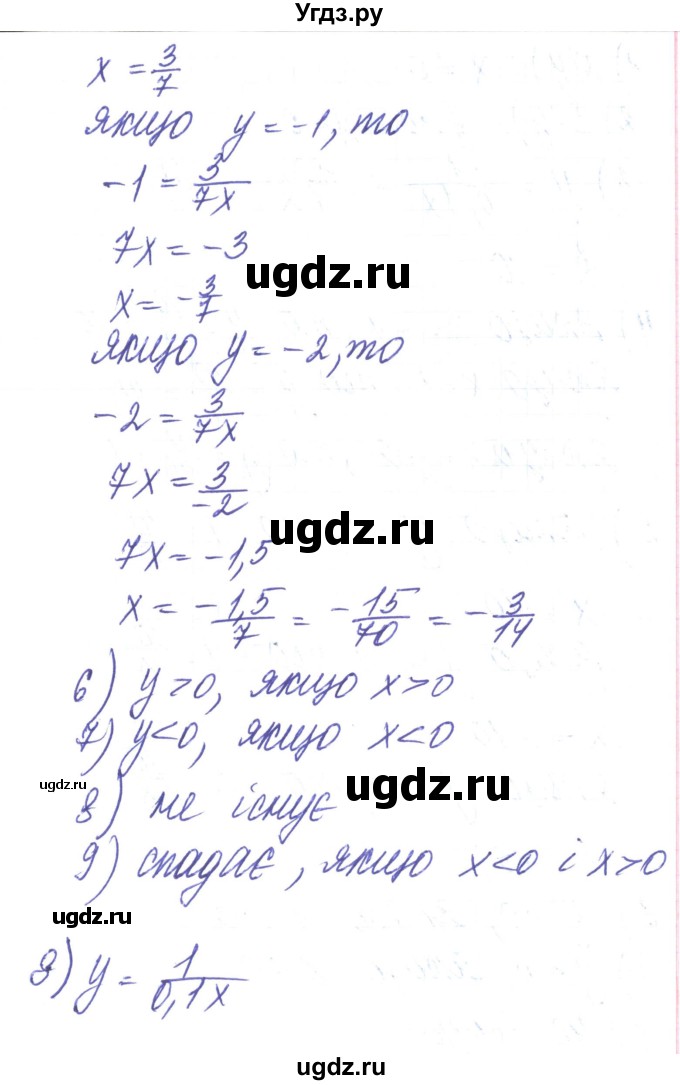 Угдз.ру
x = 3/7
якщо y = -1, то
-1 = 3/7x
7x = -3
ugdz.ru
x = -3/7
якщо y = -2, то
-2 = 3/7x
7x = 3/-2
ugdz.ru
7x = -1,5
x = -1,5/7 = -15/70 = -3/14
6) y > 0, якщо x > 0
7) y < 0, якщо x < 0
ugdz.ru
ugdz.ru
8) не існує
9) спадає, якщо x < 0 і x > 0
ugdz.ru
ugdz.ru
з) y = 1/0,1x
ugdz.ru